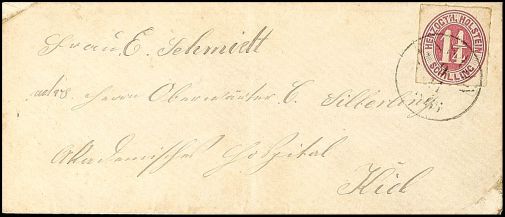 HERZOGTH. HOLSTEIN
1 1/4
SCHILLING
Frau E. Schmidt
Herrn C. Silberling
Akademisches Hospital
Kiel